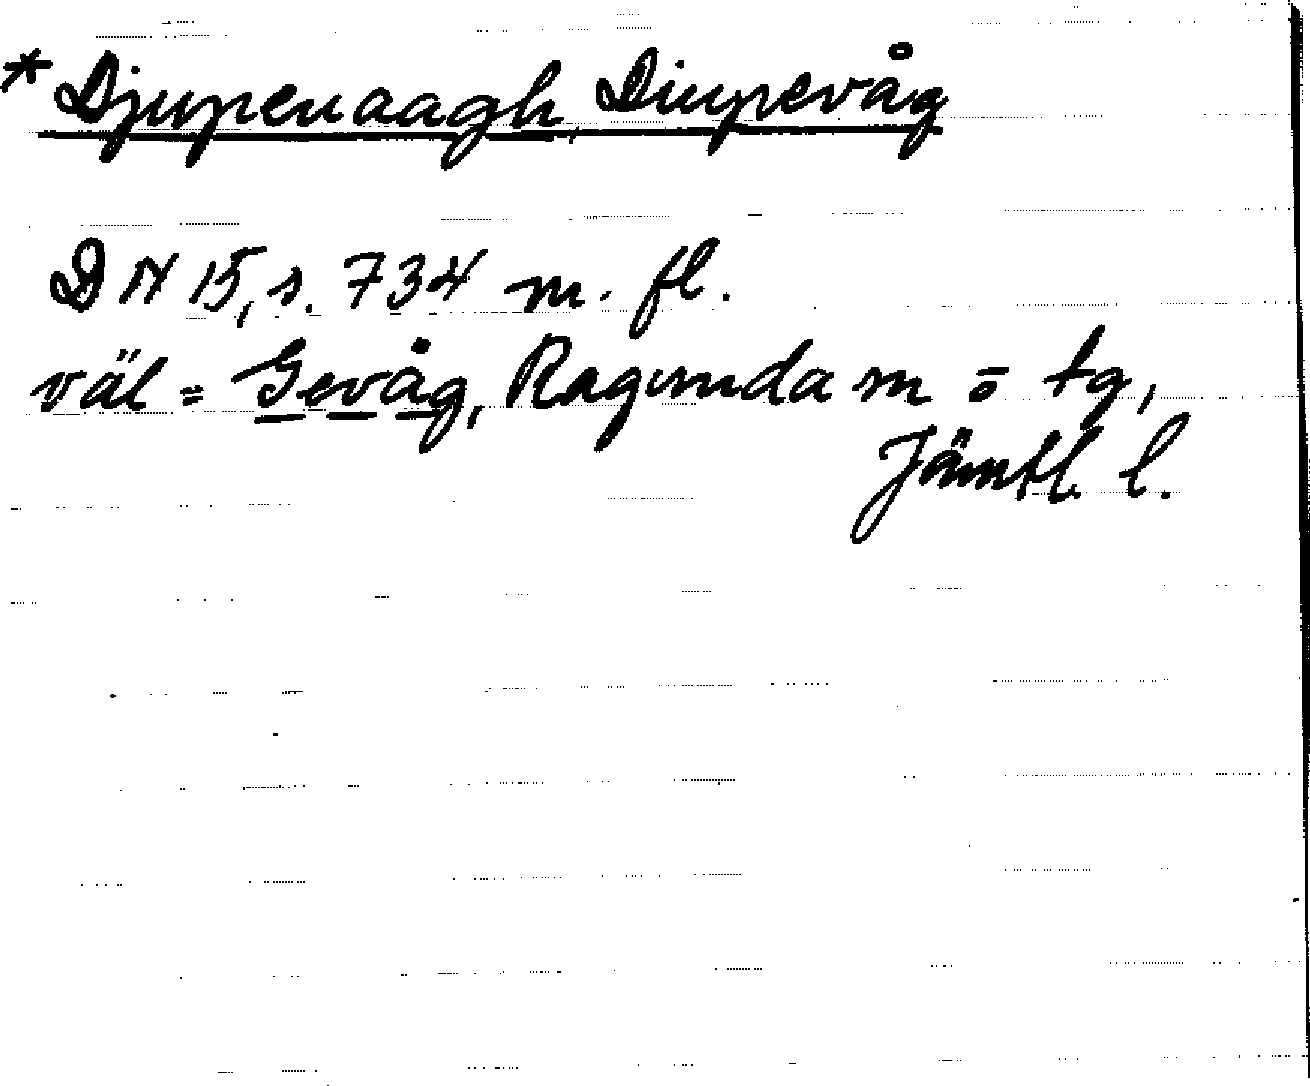 * Djupenaagh, Diupevåg
DN 15, s. 734 m. fl.
väl = Gevåg, Ragunda sn o tg,
Jämtl. l.